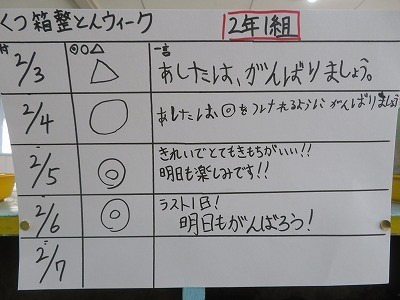 くつ箱整とんウィーク 2年1組
付 ◎○△ 一言
2/3 △ あしたは、がんばりましょう。
2/4 ○ あしたは、◎をつけれるようにがんばりましょう
2/5 ◎ きれいでとてもきもちがいい!!
明日も楽しみです!!
2/6 ◎ ラスト1日!
明日もがんばろう!
2/7